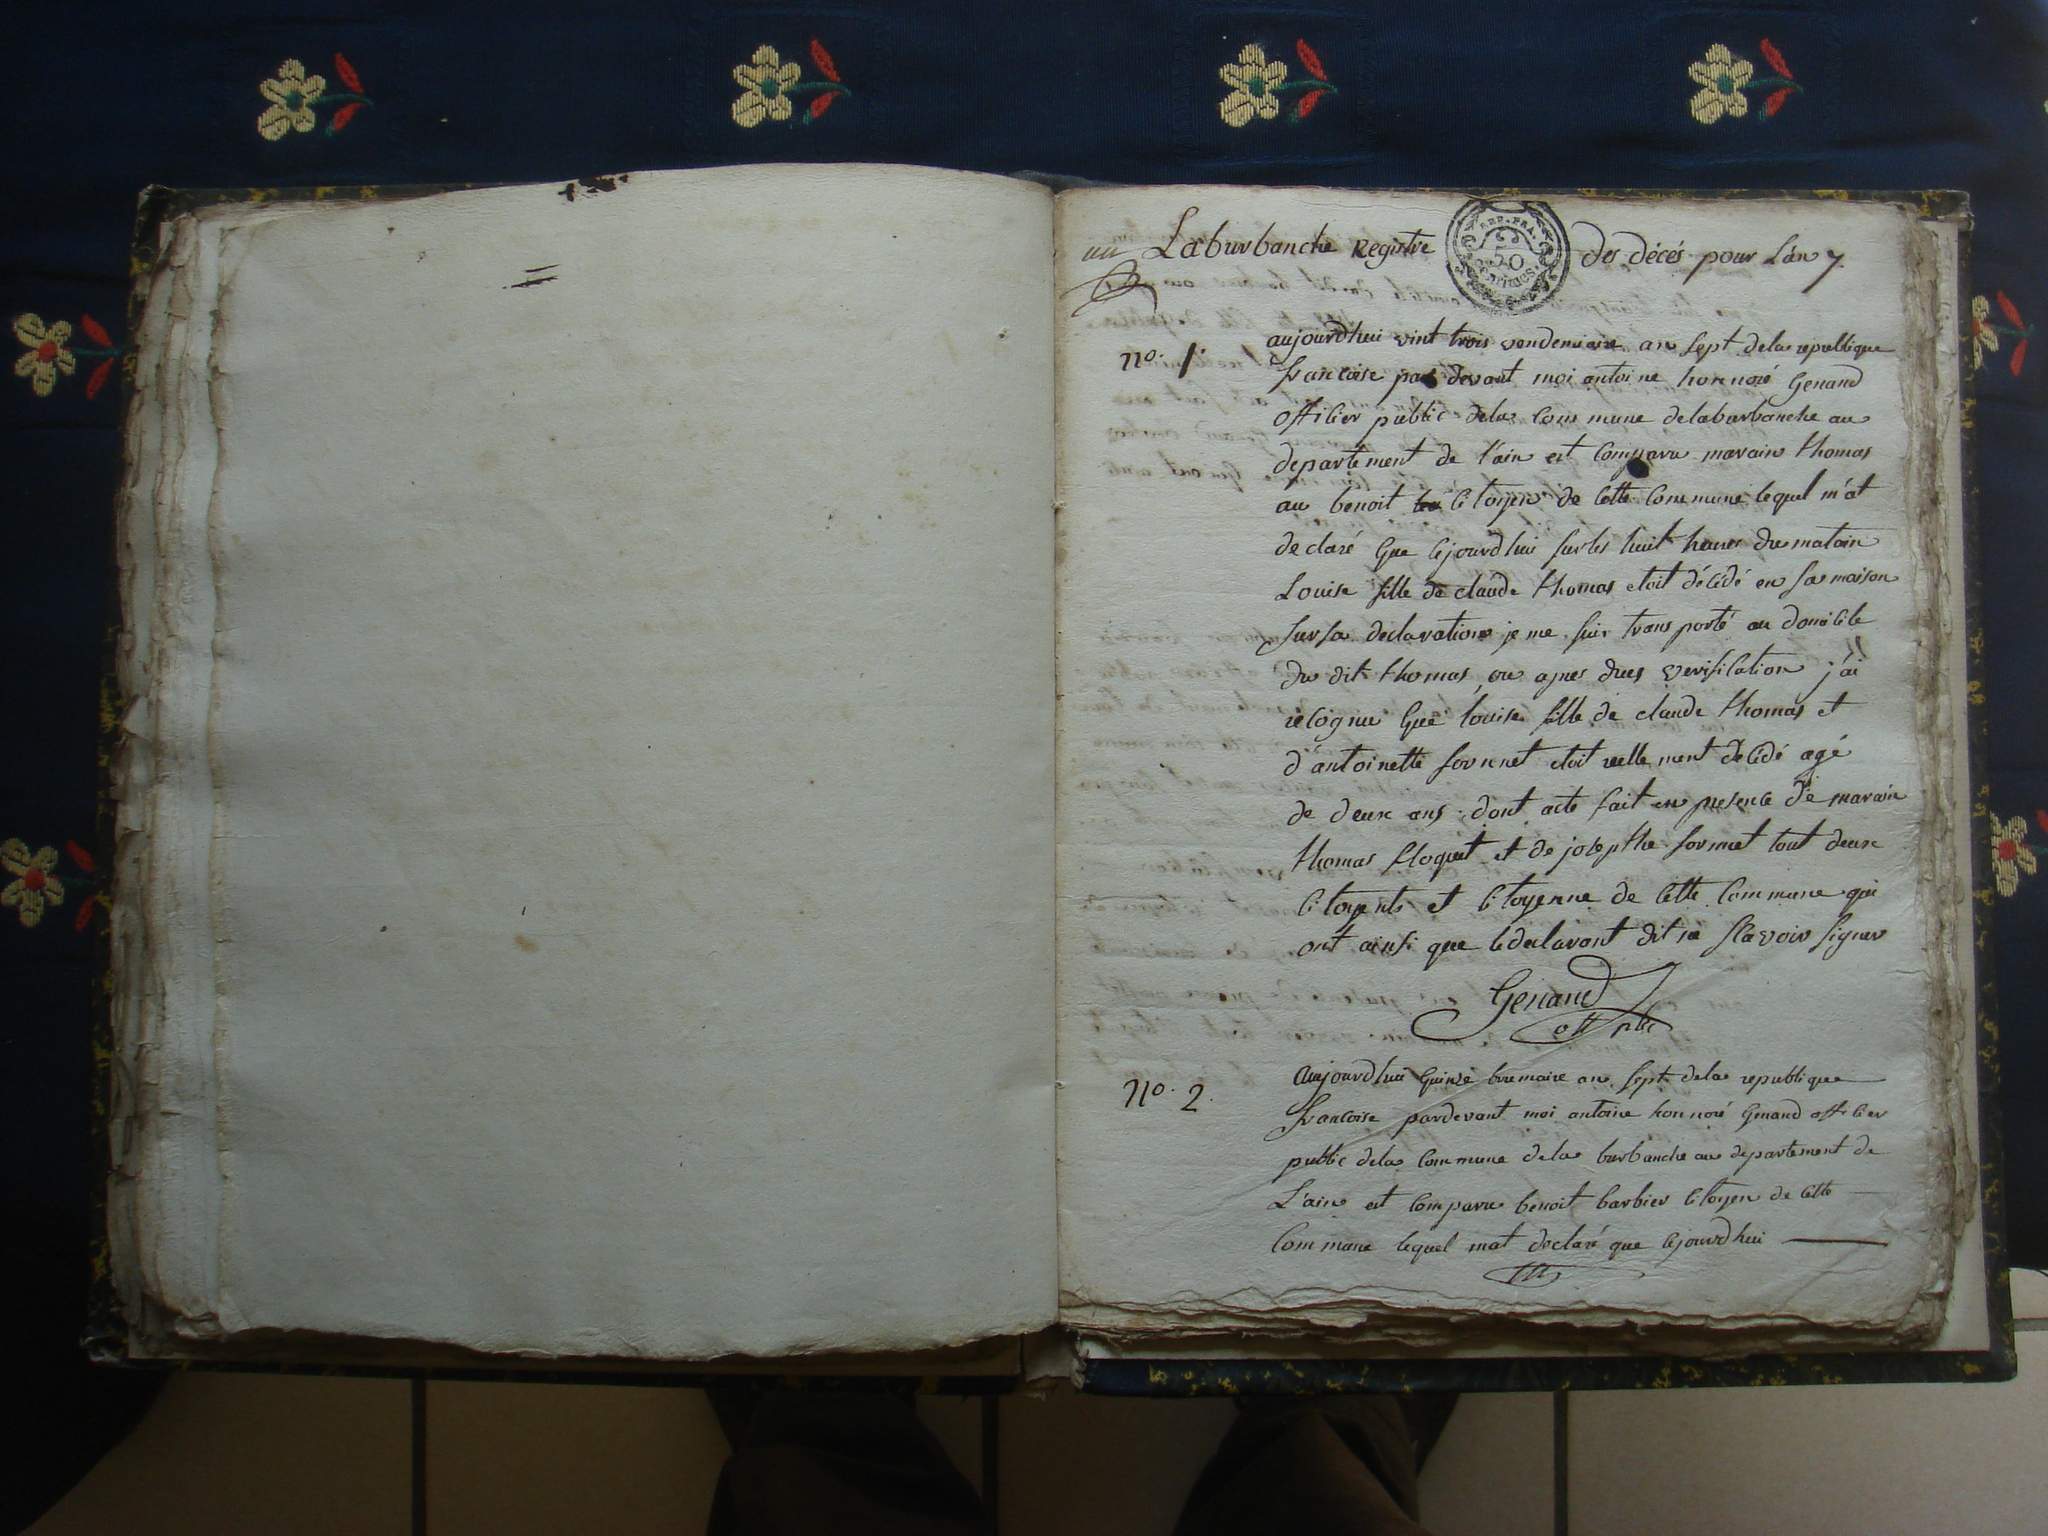 Laburbanche Registre des décés pour L'an 7.
REP. FRA.
50
CENTIMES
no. 1.
aujourdhui vint trois vendemiaire an sept dela republique
francoise par devant moi antoine honnoré Genand
officier public dela commune delaburbanche au
departement de l'ain est comparu marain thomas
au benoit citoyen de cette commune lequel m'at
declaré que cejourdhui sur les huit heures du matain
Louise fille de claude thomas etoit décédé en sa maison
sur sa declaration je me suis transporté au domicile
du dit thomas, ou apres dues verification j'ai
recognu que louise fille de claude thomas et
d'antoinette sornet etoit reellement décédé agé
de deux ans. dont acte fait en presence de marain
thomas floquet et de josepthe sornet tout deux
citoyents et citoyenne de cette commune qui
ont ainsi que le declarant dit ne scavoir signer
Genand
off plic
no. 2.
Aujourdhui quinze brumaire an sept dela republique
francoise pardevant moi antoine honnoré Genand officier
public dela commune dela burbanche au departement de
L'ain est comparu benoit barbier citoyen de cette
commune lequel mat declaré que cejourdhui